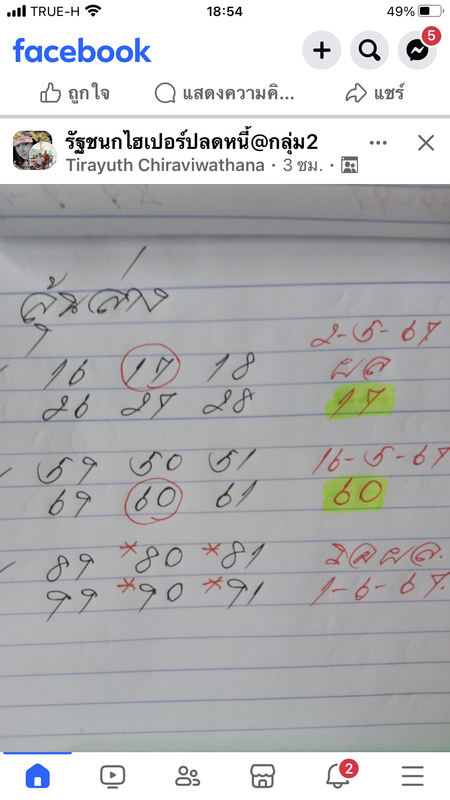 TRUE-H 18:54 49%
facebook
5
ถูกใจ แสดงความคิ... แชร์
รัฐชนกไฮเปอร์ปลดหนี้@กลุ่ม2
Tirayuth Chiraviwathana · 3 ชม. ·
ลุ้นล่าง
2-5-67
16 17 18 ผล
26 27 28 17
59 50 51 16-5-67
69 60 61 60
89 *80 *81 รอผล.
99 *90 *91 1-6-67.
2